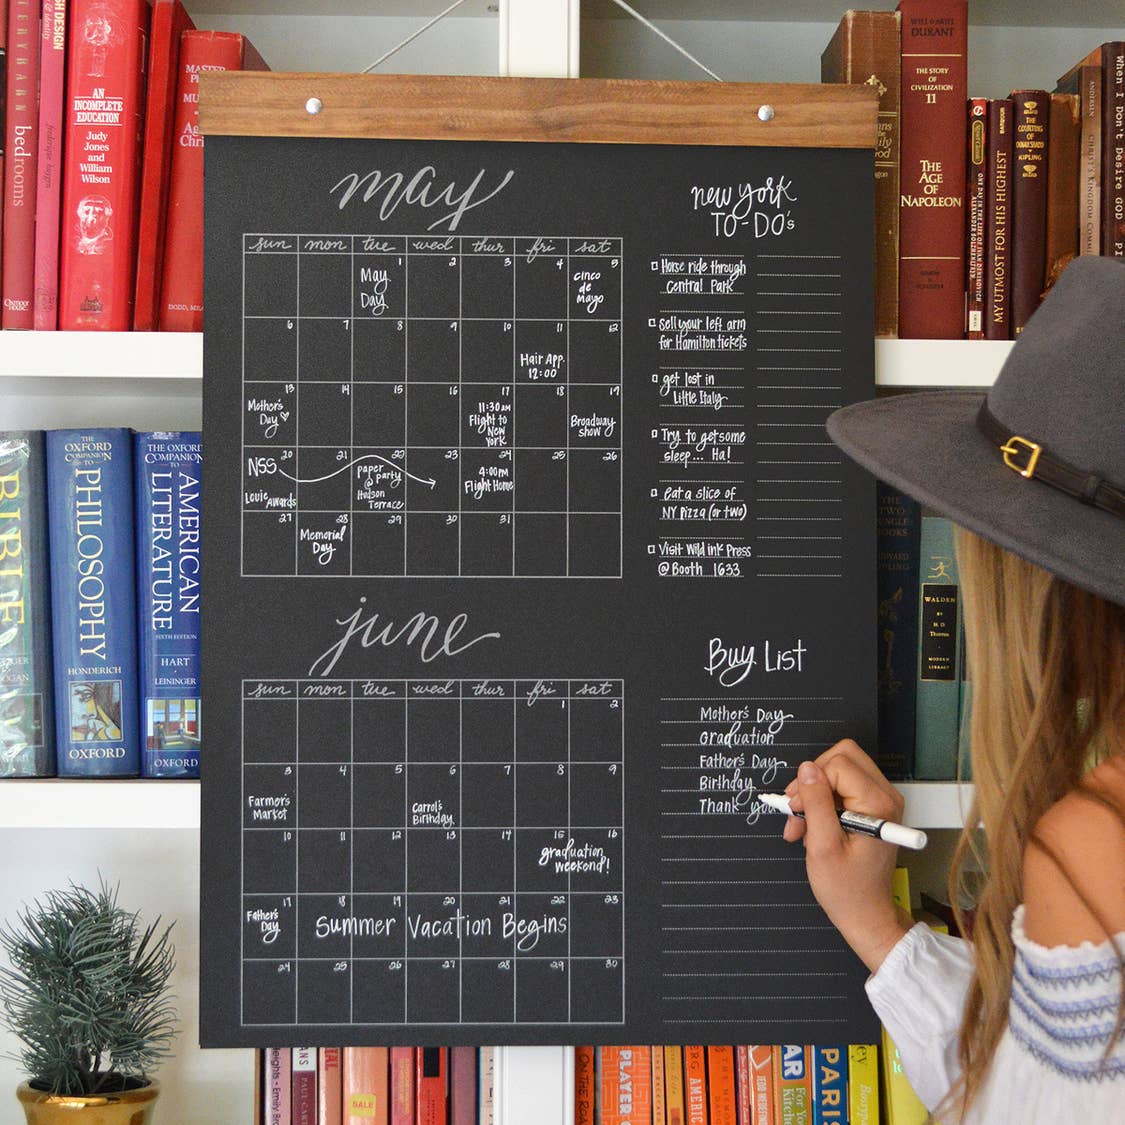 may
sun mon tue wed thur fri sat
1 2 3 4 5
May
Day
cinco
de
mayo
6 7 8 9 10 11 12
Hair App.
12:00
13 14 15 16 17 18 19
Mother's
Day
11:30 am
Flight to
New
York
Broadway
show
20 21 22 23 24 25 26
NSS
Louie Awards
paper
party
@
Hudson
Terrace
4:00pm
Flight Home
27 28 29 30 31
Memorial
Day
new york
TO-DO's
Horse ride through
Central Park
Sell your left arm
for Hamilton tickets
get lost in
Little Italy
Try to get some
sleep... Ha!
eat a slice of
NY Pizza (or two)
Visit Wild ink Press
@ Booth 1633
june
sun mon tue wed thur fri sat
1 2
3 4 5 6 7 8 9
Farmer's
Market
Carrol's
Birthday
10 11 12 13 14 15 16
graduation
weekend!
17 18 19 20 21 22 23
Father's
Day
Summer Vacation Begins
24 25 26 27 28 29 30
Buy List
Mother's Day
Graduation
Father's Day
Birthday
Thank you
bedrooms
AN
INCOMPLETE
EDUCATION
Judy
Jones
and
William
Wilson
THE
OXFORD
COMPANION
TO
PHILOSOPHY
HONDERICH
OXFORD
THE OXFORD
COMPANION
TO
AMERICAN
LITERATURE
SIXTH EDITION
HART
LEININGER
OXFORD
BIBLE
WILL & ARIEL
DURANT
THE STORY
OF
CIVILIZATION
11
THE
AGE
OF
NAPOLEON
MY UTMOST FOR HIS HIGHEST
KIPLING
When I Don't Desire God
WALDEN
MODERN
LIBRARY
SALE
ON THE ROAD
PLAYER
PARIS